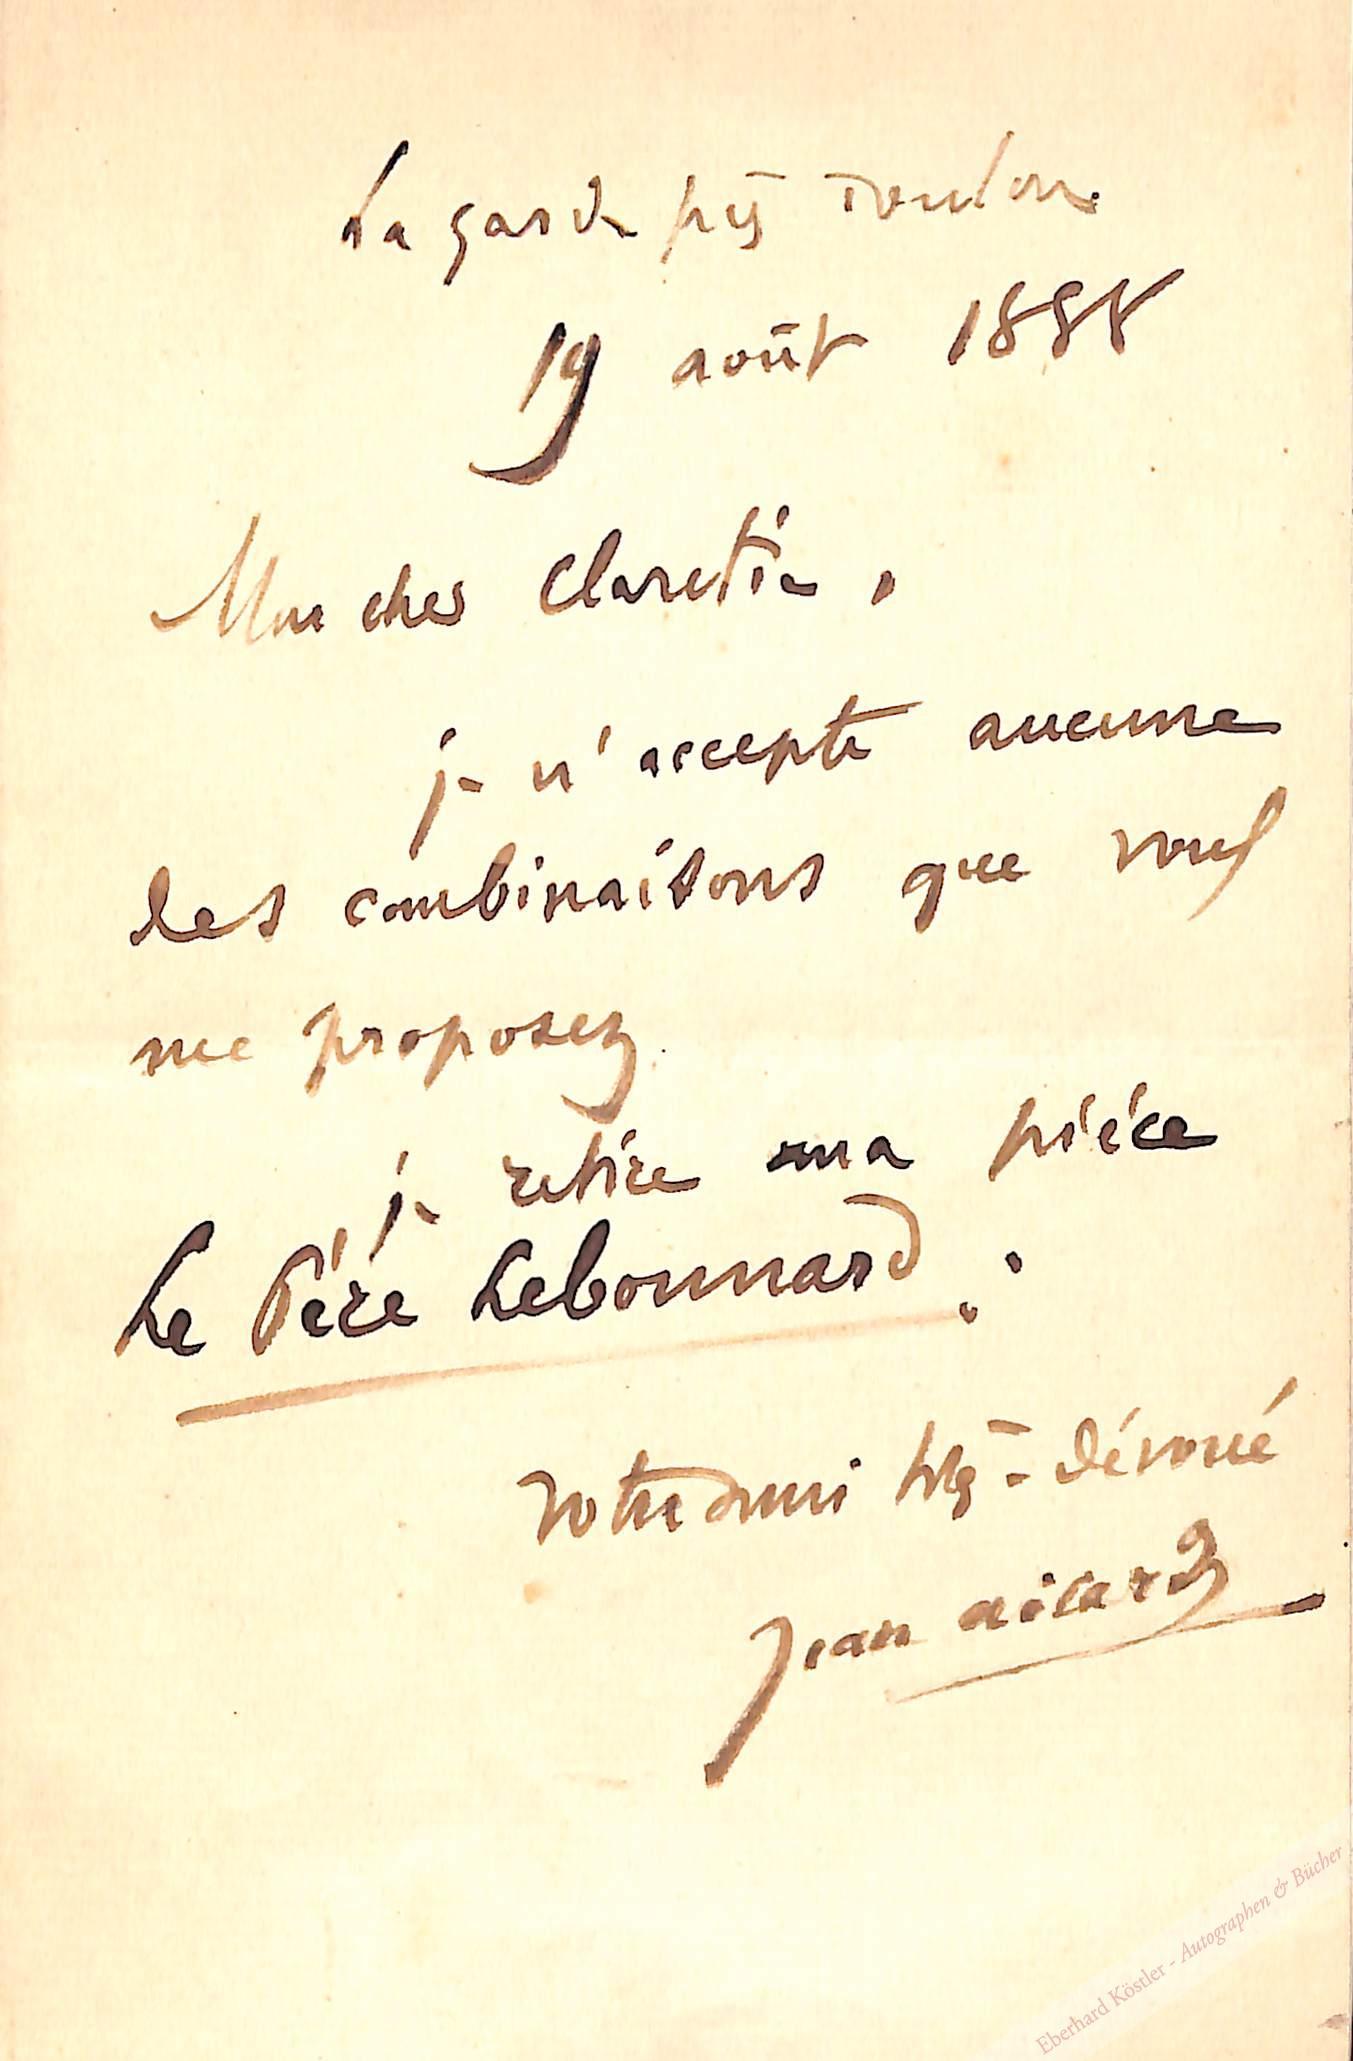 La Garde près Toulon.
19 août 1888
Mon cher Claretie,
je n'accepte aucune
des combinaisons que vous
me proposez.
je retire ma pièce
Le Père Lebonnard.
Votre ami très-dévoué
Jean Aicard
Eberhard Köstler - Autographen & Bücher